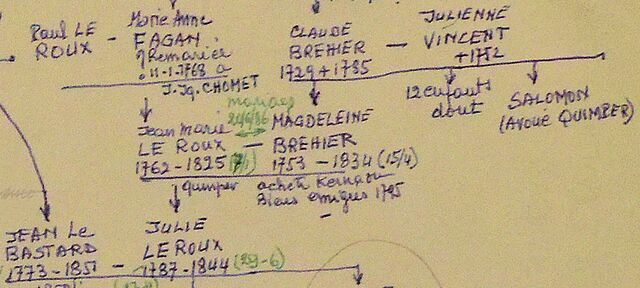 Paul LE
ROUX -
Marie Anne
FAGAN
Remariée
11-1-1768 a
J. Jq. CHOMET
CLAUDE
BREHIER -
1729 + 1785
JULIENNE
VINCENT
+ 1752
12 enfants
dont
SALOMON
(AVOUE QUIMPER)
Jean Marie
LE ROUX -
1762 - 1825
Quimper
MAGDELEINE
BREHIER
1753 - 1834 (15/4)
achete
Biens émigrés 1795
JEAN Le
BASTARD -
1773 - 1851
JULIE
LE ROUX
1787 - 1844 (29-6)